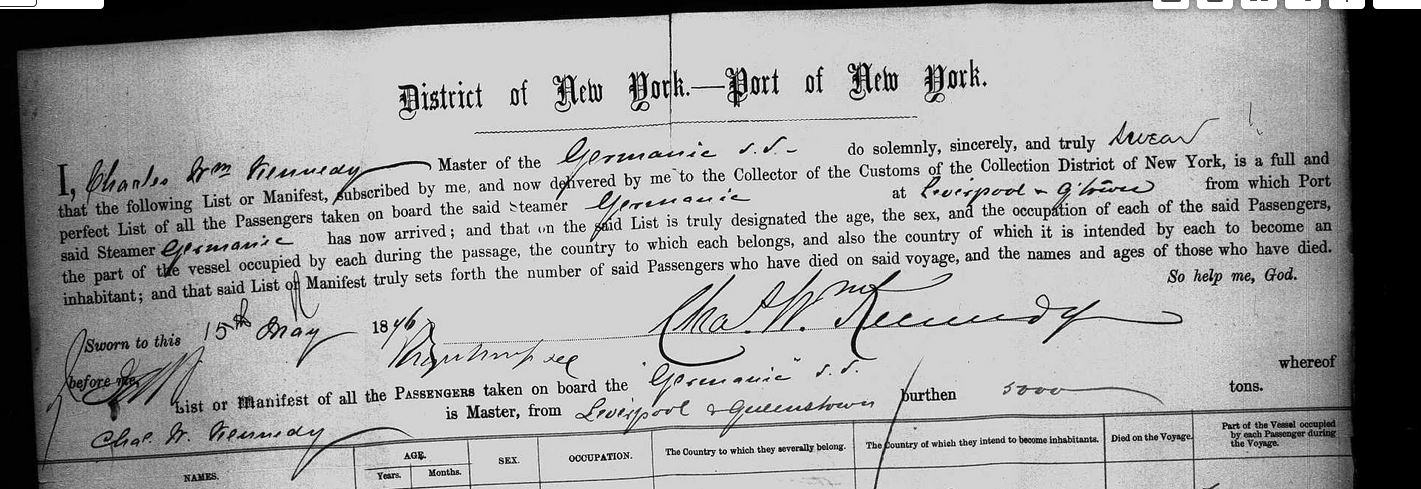 District of New York.—Port of New York.
I, Charles Wm Kennedy Master of the Germanic s.s. do solemnly, sincerely, and truly swear
that the following List or Manifest, subscribed by me, and now delivered by me to the Collector of the Customs of the Collection District of New York, is a full and
perfect List of all the Passengers taken on board the said Steamer Germanic at Liverpool & Qtown from which Port
said Steamer Germanic has now arrived; and that on the said List is truly designated the age, the sex, and the occupation of each of the said Passengers,
the part of the vessel occupied by each during the passage, the country to which each belongs, and also the country of which it is intended by each to become an
inhabitant; and that said List or Manifest truly sets forth the number of said Passengers who have died on said voyage, and the names and ages of those who have died.
So help me, God.
Sworn to this 15th May 18 Chas. W. Kennedy
before me,
List or Manifest of all the PASSENGERS taken on board the Germanic s.s. whereof
Chas. W. Kennedy is Master, from Liverpool & Queenstown burthen 5000 tons.
NAMES. AGE. Years. Months. SEX. OCCUPATION. The Country to which they severally belong. The Country of which they intend to become inhabitants. Died on the Voyage. Part of the Vessel occupied by each Passenger during the Voyage.